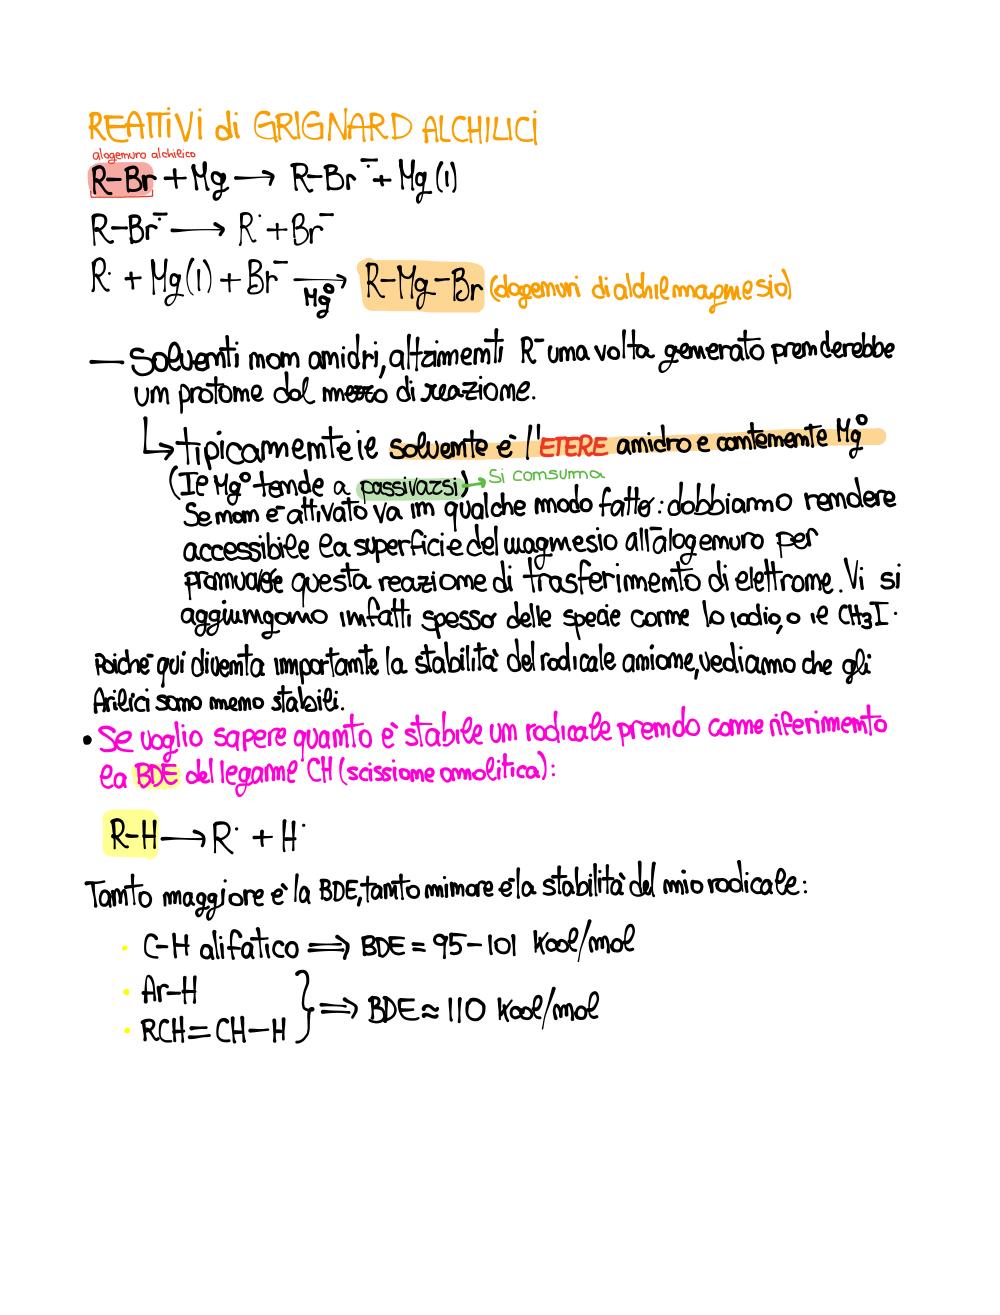 REATTIVI di GRIGNARD ALCHILICI
alogenuro alchilico
R-Br + Mg → R-Br∸ + Mg(I)
R-Br∸ → R· + Br⁻
R· + Mg(I) + Br⁻ → Mg° R-Mg-Br (alogenuri di alchilmagnesio)
— Solventi non anidri, altrimenti R⁻ una volta generato prenderebbe
un protone dal mezzo di reazione.
↳ tipicamente il solvente è l'ETERE anidro e contenente Mg°
(Il Mg° tende a passivarsi) → Si consuma
Se non è attivato va in qualche modo fatto: dobbiamo rendere
accessibile la superficie del magnesio all'alogenuro per
promuovere questa reazione di trasferimento di elettrone. Vi si
aggiungono infatti spesso delle specie come lo iodio, o il CH3I.
Poiché qui diventa importante la stabilità del radicale anione, vediamo che gli
Arilici sono meno stabili.
• Se voglio sapere quanto è stabile un radicale prendo come riferimento
la BDE del legame CH (scissione omolitica):
R-H → R· + H·
Tanto maggiore è la BDE, tanto minore è la stabilità del mio radicale:
• C-H alifatico ⇒ BDE = 95-101 Kcal/mol
• Ar-H
• RCH=CH-H } ⇒ BDE ≈ 110 Kcal/mol